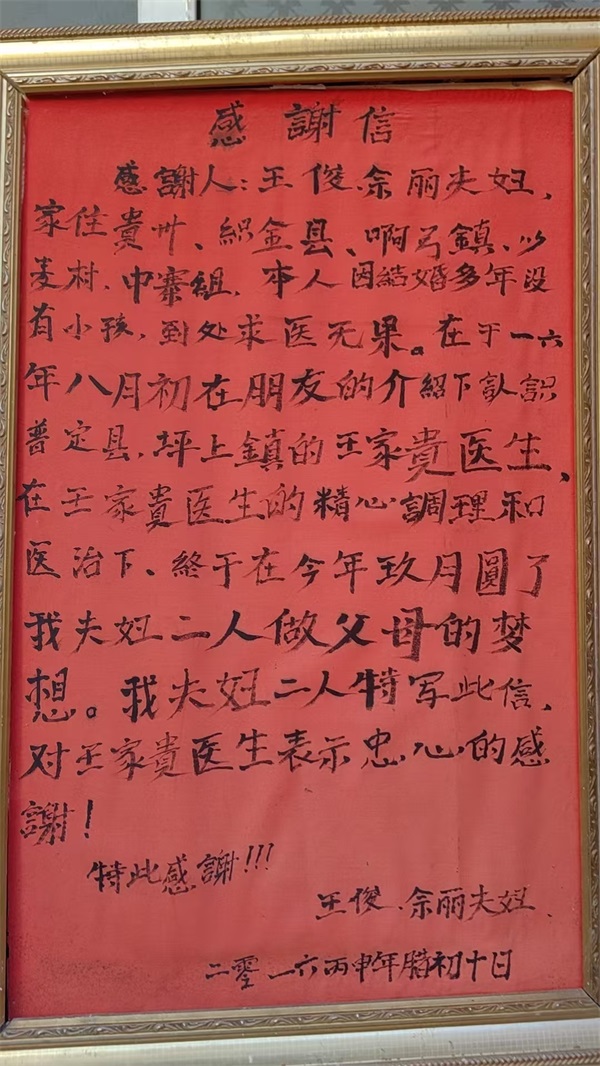 感謝信
感謝人：王俊、佘丽夫妞、
家住貴州、織金县、啊弓鎮、以
麦村、中寨組、本人因結婚多年没
有小孩，到处求医无果。在于一六
年八月初在朋友的介紹下认識
普定县，坪上鎮的王家貴医生、
在王家貴医生的精心調理和
医治下、終于在今年玖月圓了
我夫妞二人做父母的梦
想。我夫妞二人特写此信，
对王家貴医生表示忠心的感
謝！
特此感謝!!!
王俊、佘丽夫妞
二零一六丙申年腊初十日